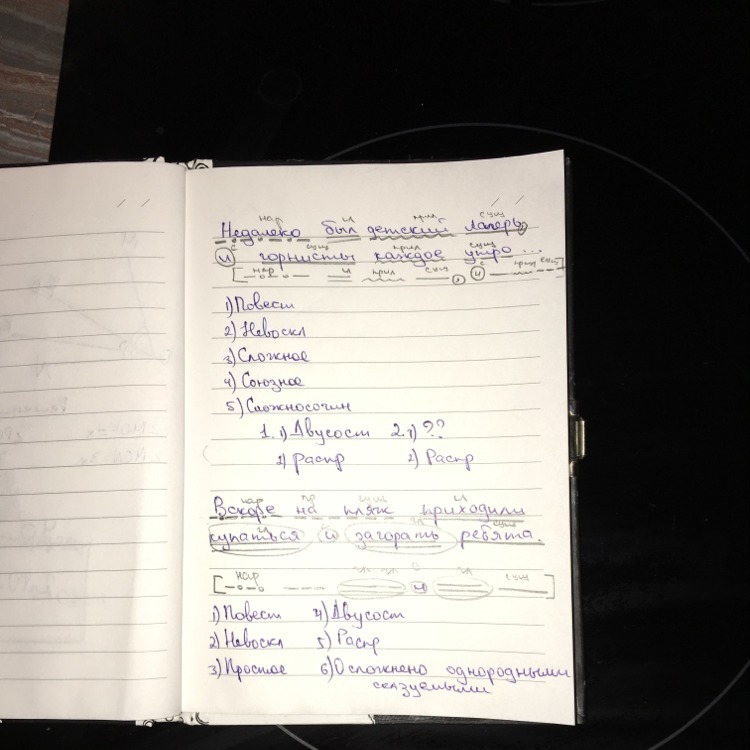 нар гл прил сущ
Недалеко был детский лагерь,
с сущ прил сущ
и горнисты каждое утро ...
[нар гл прил сущ , с и прил сущ]
1) Повест
2) Невоскл
3) Сложное
4) Союзное
5) Сложносочин
1. 1) Двусост 2. 1) ??
2) Распр 2) Распр
нар пр сущ гл
Вскоре на пляж приходили
гл с гл сущ
купаться и загорать ребята.
[нар гл гл с и гл сущ]
1) Повест 4) Двусост
2) Невоскл 5) Распр
3) Простое 6) Осложнено однородными
сказуемыми